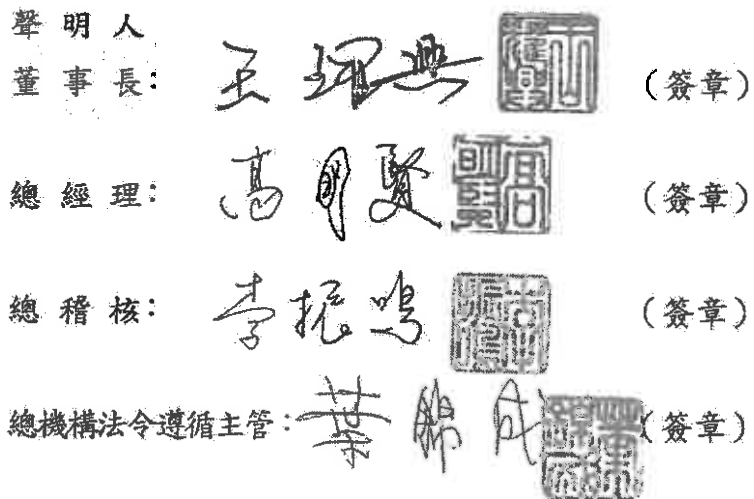 聲明人
董事長：王耀興（簽章）
總經理：高明賢（簽章）
總稽核：李振鳴（簽章）
總機構法令遵循主管：葉錦成（簽章）